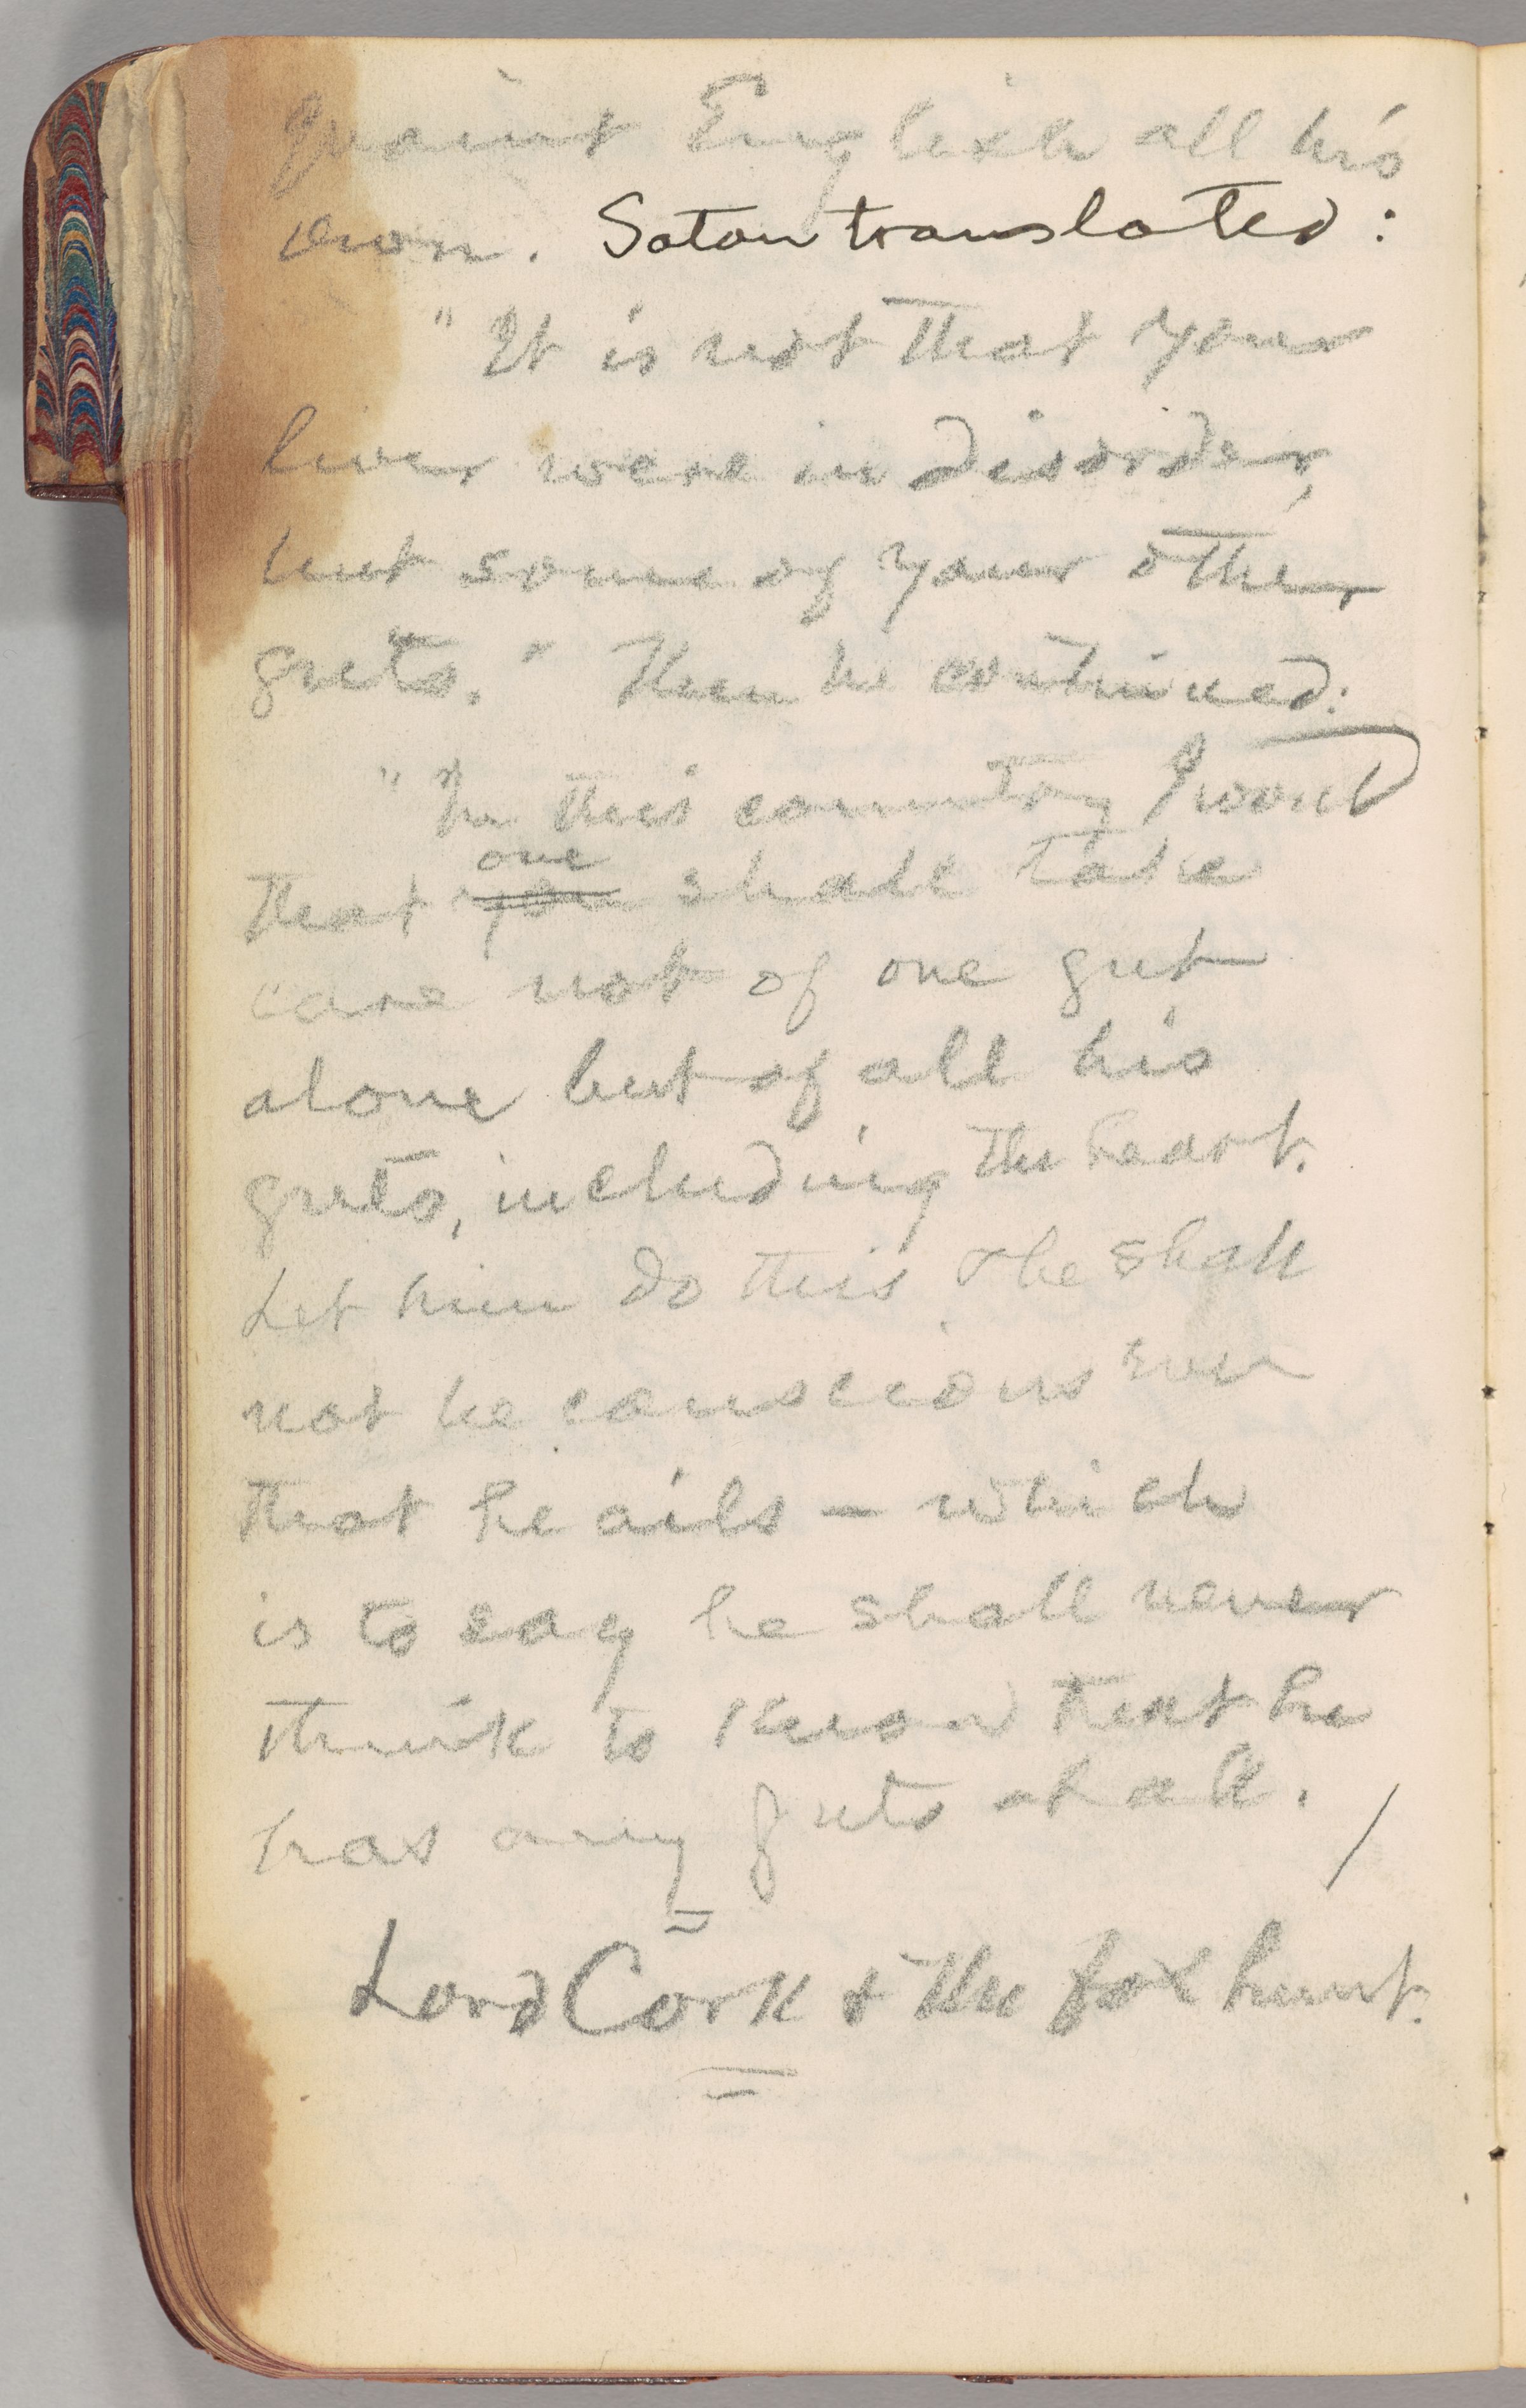 quaint English all his
own. Satan translated:
"It is not that your
liver were in disorder,
but some of your other
guts." Then he continued:
"In this country I want
one
that you shall take
care not of one gut
alone but of all his
guts, including the heart.
Let him do this & he shall
not be conscious
that he ails — which
is to say he shall never
think to know that he
has any guts at all. /
Lord Cork & the fox hunt.